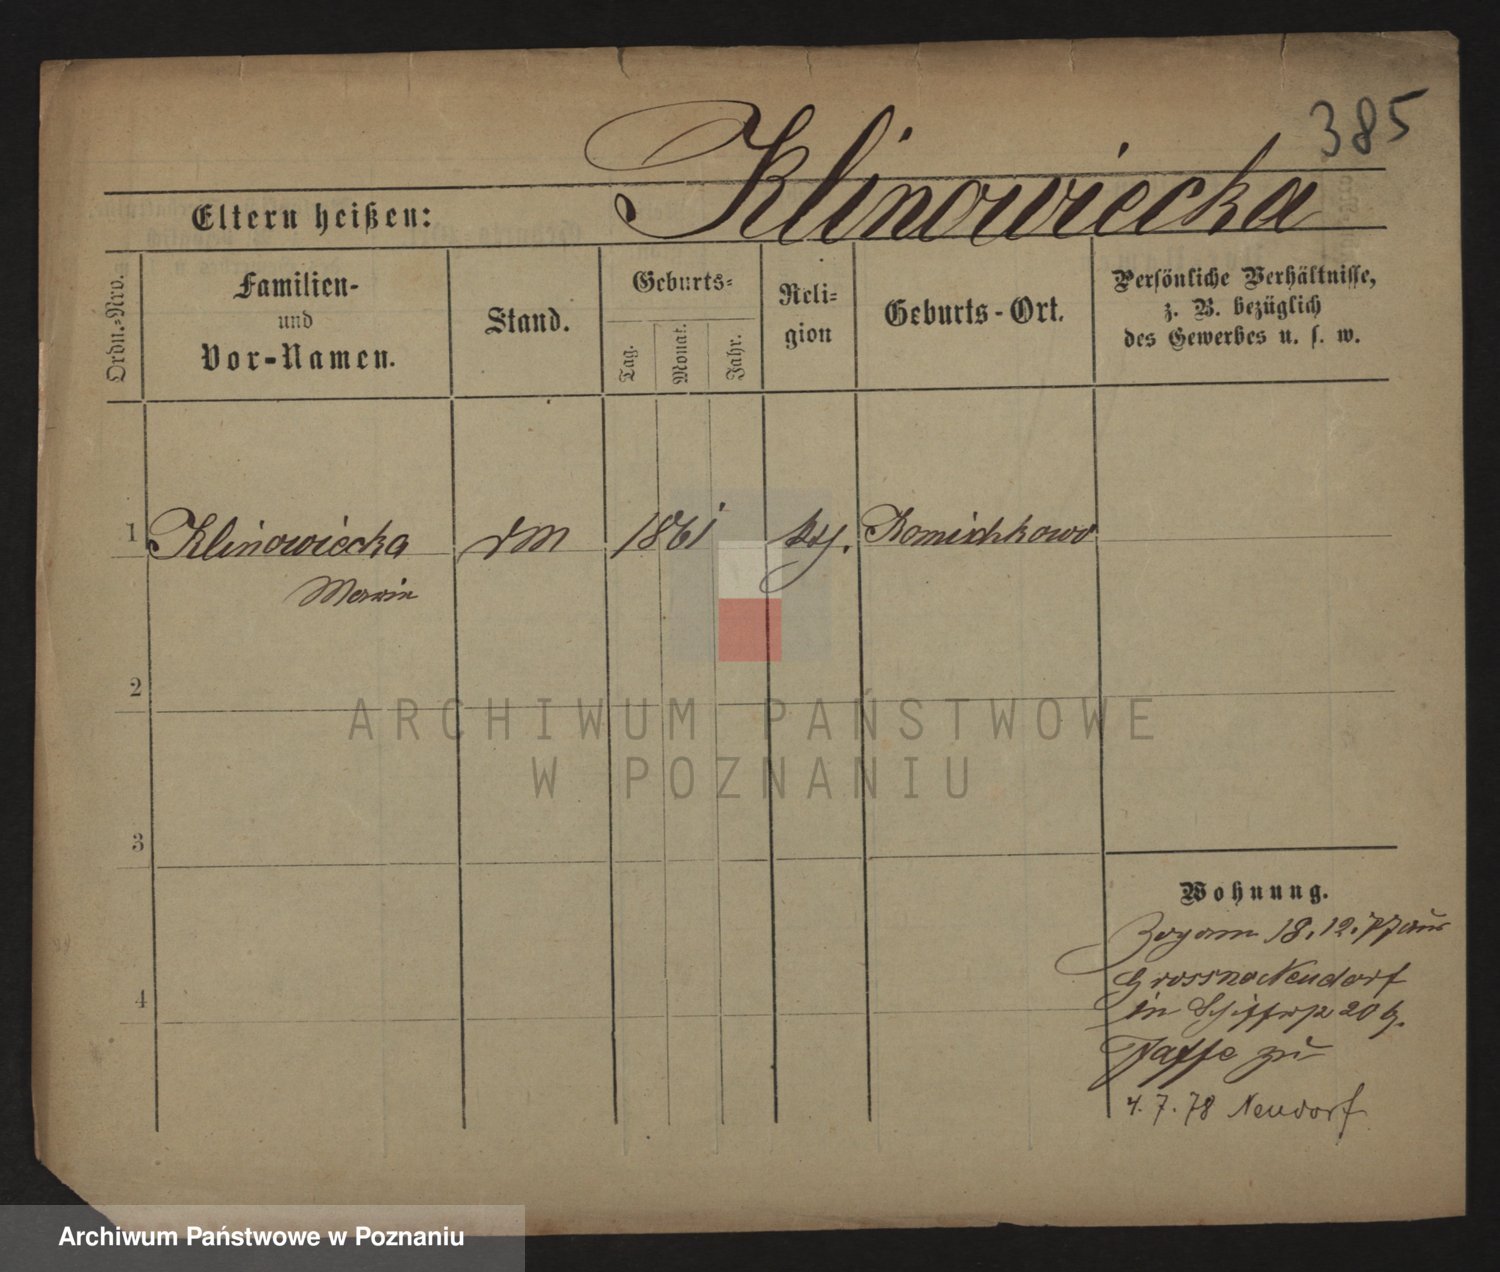 385
Klinowiecka
Eltern heißen:
Ordn.-Nro.
Familien-
und
Vor-Namen.
Stand.
Geburts-
Tag.
Monat.
Jahr.
Reli-
gion
Geburts-Ort.
Persönliche Verhältnisse,
z. B. bezüglich
des Gewerbes u. s. w.
1
Klinowiecka
1861
Marie
2
ARCHIWUM PAŃSTWOWE
W POZNANIU
3
Wohnung.
18.12.77 aus
Neudorf
in 20 b.
zu
4
4.7.78 Neudorf
Archiwum Państwowe w Poznaniu